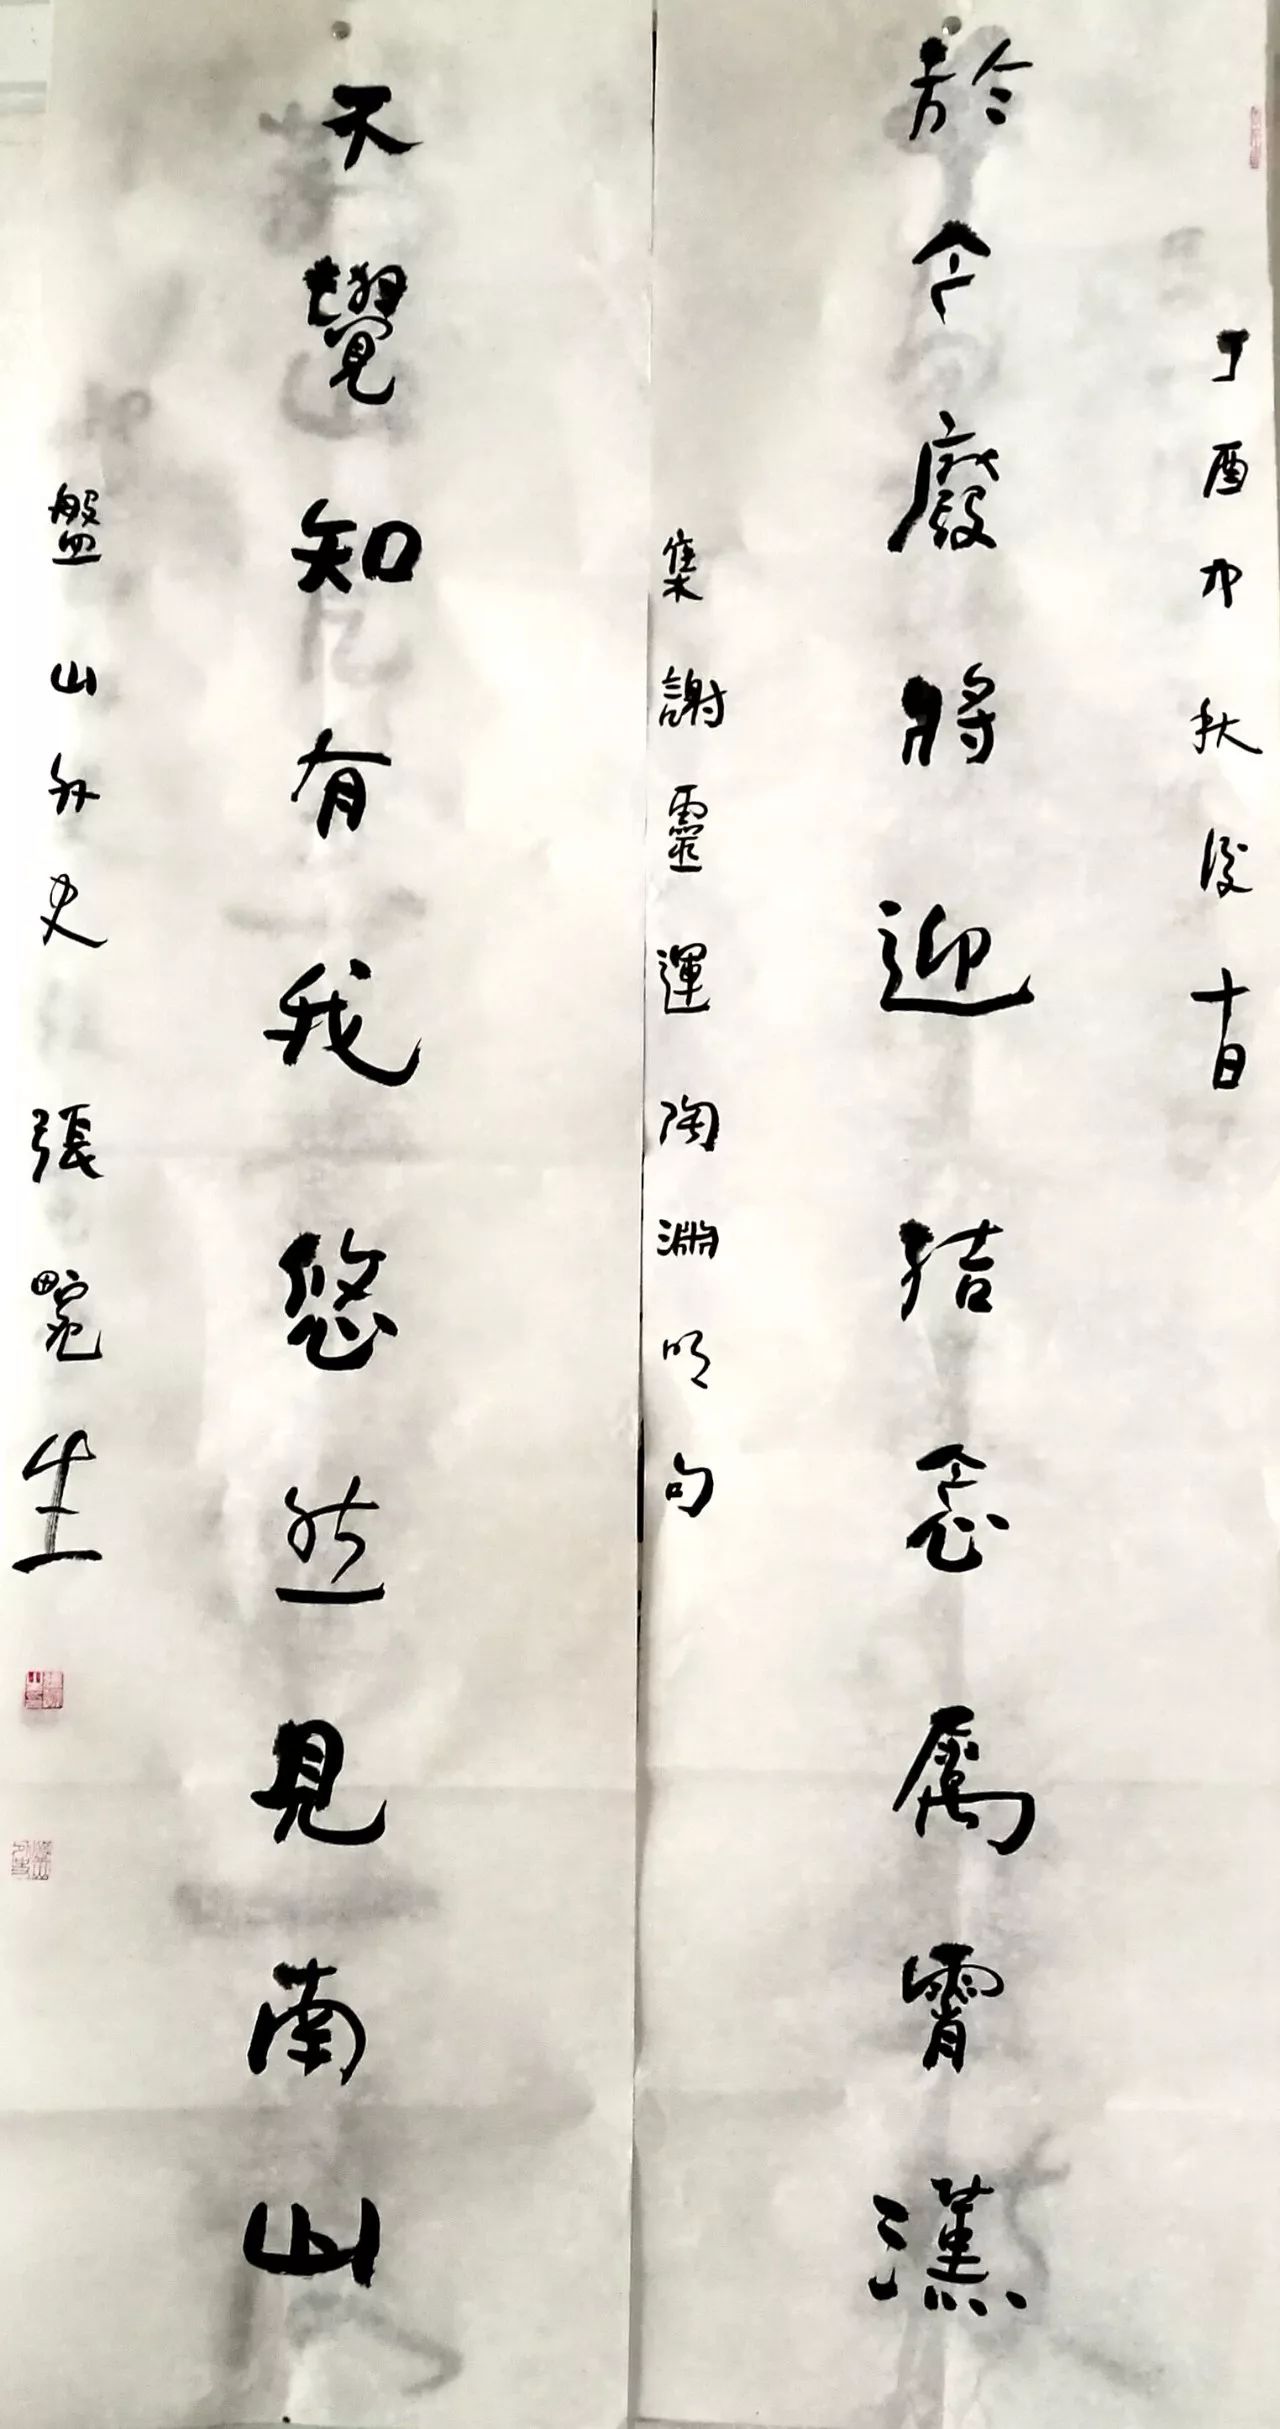 丁酉中秋後十日
於今廢將迎結念屬霄漢
集謝靈運陶淵明句
不覺知有我悠然見南山
盤山外史張畹生